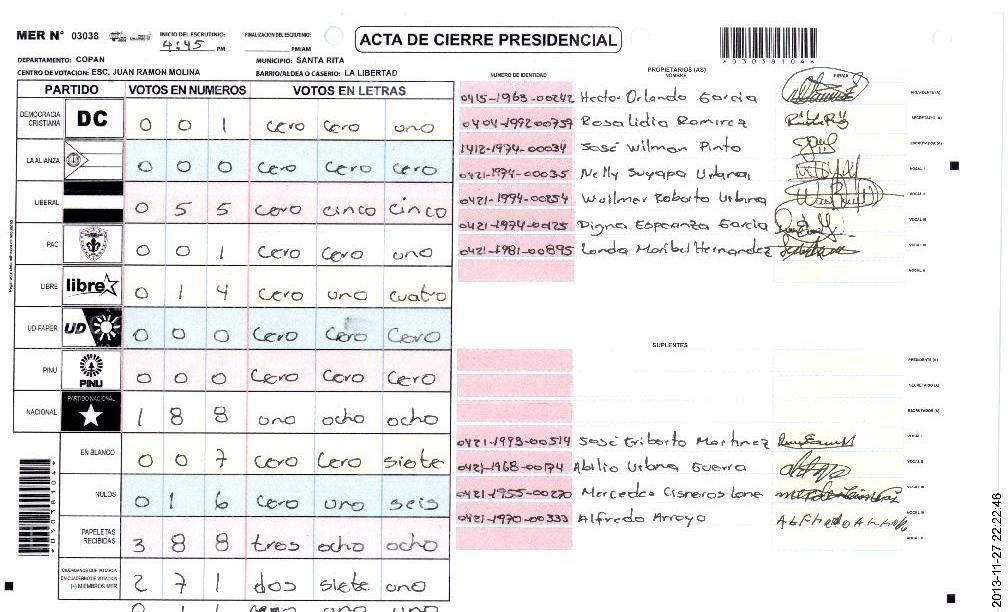 MER N° 03038
INICIO DEL ESCRUTINIO: 4:45 PM
FINALIZACION DEL ESCRUTINIO: PM/AM
ACTA DE CIERRE PRESIDENCIAL
*03038104*
DEPARTAMENTO: COPAN
MUNICIPIO: SANTA RITA
CENTRO DE VOTACION: ESC. JUAN RAMON MOLINA
BARRIO/ALDEA O CASERIO: LA LIBERTAD
PARTIDO VOTOS EN NUMEROS VOTOS EN LETRAS
DEMOCRACIA CRISTIANA DC 0 0 1 cero cero uno
LA ALIANZA 0 0 0 cero cero cero
LIBERAL 0 5 5 cero cinco cinco
PAC 0 0 1 cero cero uno
LIBRE libre 0 1 4 cero uno cuatro
UD-FAPER UD 0 0 0 cero cero cero
PINU PINU 0 0 0 cero cero cero
NACIONAL PARTIDO NACIONAL 1 8 8 uno ocho ocho
EN BLANCO 0 0 7 cero cero siete
NULOS 0 1 6 cero uno seis
PAPELETAS RECIBIDAS 3 8 8 tres ocho ocho
CIUDADANOS QUE VOTARON EN CUADERNO DE VOTACION (+) MIEMBROS MER 2 7 1 dos siete uno
0 1 1 cero uno uno
NUMERO DE IDENTIDAD PROPIETARIOS (AS) NOMBRE FIRMA
0415-1963-00242 Hector Orlando Garcia PRESIDENTE (A)
0404-1992 00757 Rosalidia Ramirez SECRETARIO (A)
1412-1974-00034 José Wilman Pinto ESCRUTADOR (A)
0421-1974-00035 Nelly Suyapa Urbina VOCAL I
0421-1994-00254 Wollmer Roberto Urbina VOCAL II
0421-1974-00125 Digna Esperanza Garcia VOCAL III
0421-1981-00895 Londa Maribel Hernandez
SUPLENTES
PRESIDENTE (A)
SECRETARIO (A)
ESCRUTADOR (A)
0421-1993-00514 José Eriberto Martinez VOCAL I
0421-1968-00174 Abilio Urbina Guerra VOCAL II
0421-1955-00270 Mercedes Cisneros Lone VOCAL III
0421-1970-00333 Alfredo Arroyo
*03038104*
2013-11-27 22:22:46